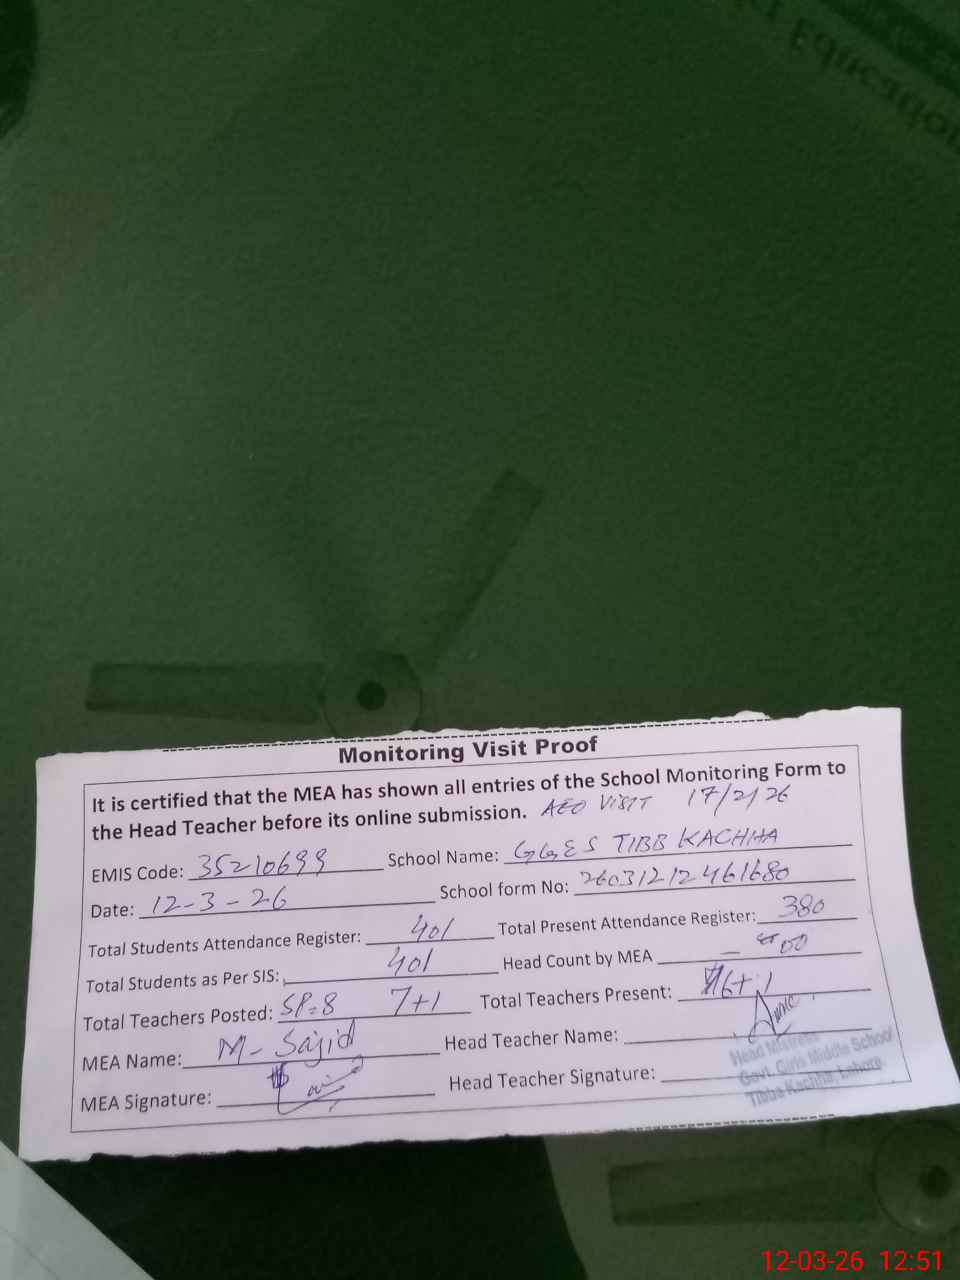 Education
Monitoring Visit Proof
It is certified that the MEA has shown all entries of the School Monitoring Form to
the Head Teacher before its online submission. AEO VISIT 17/2/26
EMIS Code: 35210699 School Name: GGES TIBB KACHHA
Date: 12-3-26 School form No: 26031212461680
Total Students Attendance Register: 401 Total Present Attendance Register: 380
Total Students as Per SIS: 401 Head Count by MEA
Total Teachers Posted: SP=8 7+1 Total Teachers Present: 6+1
MEA Name: M- Sajid Head Teacher Name:
MEA Signature: Head Teacher Signature:
Head Mistress
Govt. Girls Middle School
Tibba Kachha Lahore
12-03-26 12:51